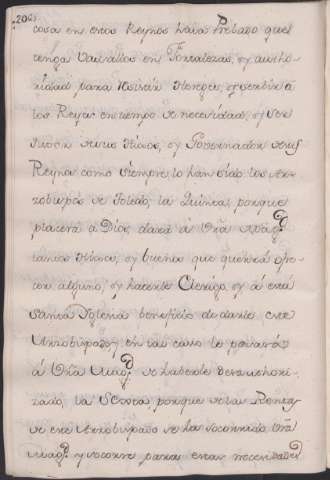 200
cosa en estos Reynos haia Prelado que
tenga Vasallos en Fortalezas, y autho-
ridad para hacer gente, y servir a
los Reyes en tiempo de necesidad, y ser
de sus hixos, y Governador de sus
Reynos como siempre lo han sido los Ar-
zobispos de Toledo, la Quinta, porque
placera à Dios, dará à Vrã Magd.
tantos hixos, y buenos que querrá ofre-
cer alguno, y hacerle Clerigo, y à esta
Santa Iglesia beneficio de darle este
Arzobispado, y en tal caso le pesará
à Vrã Magd. de haberle desauthori-
zado, la Sexta, porque de las Rentas
de este Arzobispado se ha socorrido Vrã
Magd. y socorre para estas necesidades